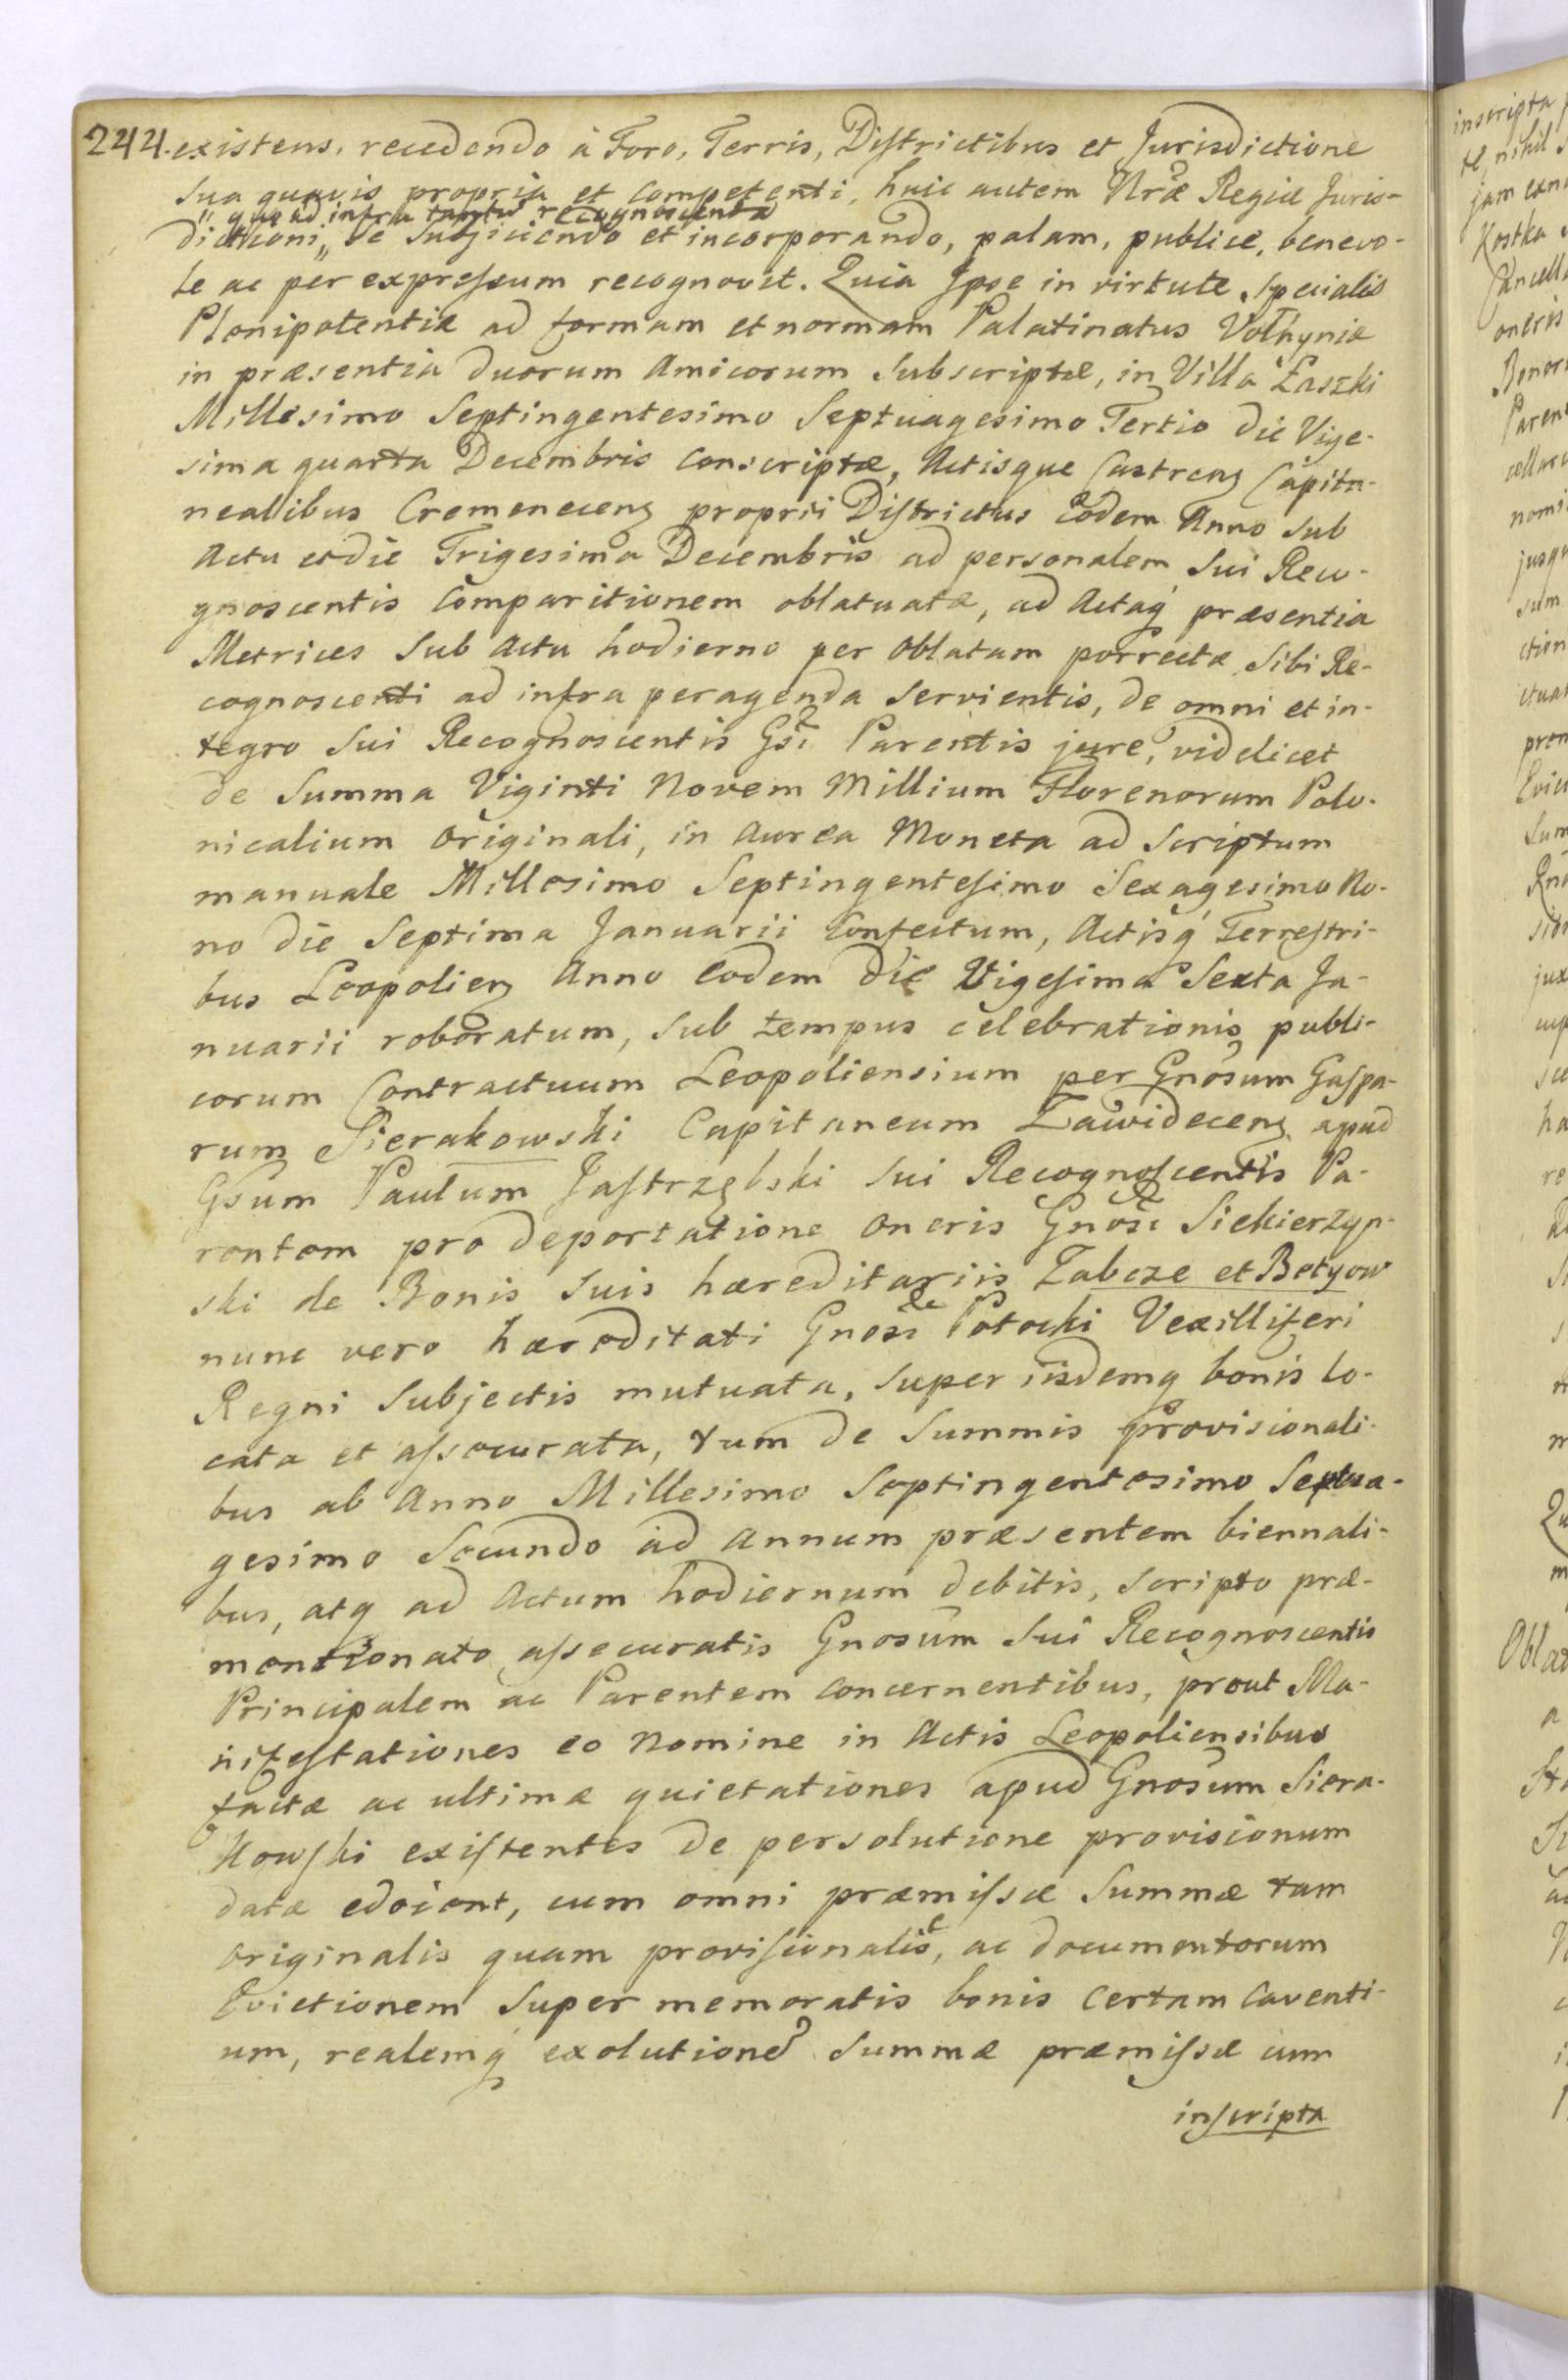 244. existens, recedendo à Foro, Terris, Diſtrictibus et Jurisdictione
sua quavis propria et competenti, huic autem Nræ Regiæ Juris-
" quo ad infra tantũ recognoscenda
dictioni „ se Subjiciendo et incorporando, palam, publice, benevo-
le ac per expreſsum recognovit. Quia Ipse in virtute Specialis
Plenipotentiæ ad formam et normam Palatinatus Volhyniæ
in præsentia duorum Amicorum Subscriptæ, in Villa Łaszki
Millesimo Septingentesimo Septuagesimo Tertio die Vige-
sima quarta Decembris Conscriptæ, Actisque Castrenȝ Capita-
nealibus Cremenecenȝ proprii Diſtrictus Eodem Anno Sub
Actu et die Trigesima Decembris ad personalem Sui Reco-
gnoscentis Comparitionem oblatuatæ, ad Actaq́ præsentia
Metrices Sub Actu hodierno per Oblatam porrectæ Sibi Re-
cognoscenti ad infra peragenda Servientis, de omni et in-
tegro Sui Recognoscentis Gsi Parentis jure, videlicet
de Summa Viginti Novem Millium Florenorum Polo-
nicalium Originali, in Aurea Moneta ad Scriptum
manuale Millesimo Septingenteſimo Sexagesimo No-
no die Septima Januarii Confectum, Actisq́ Terreſtri-
bus Leopolienȝ Anno Eodem die Vigeſima Sexta Ja-
nuarii roboratum, Sub tempus celebrationis publi-
corum Contractuum Leopoliensium per Gnosum Gaſpa-
rum Sierakowski Capitaneum Zawidecenȝ apud
Gsum Paulum Jaſtrzębski Sui Recognoſcentis Pa-
rentem pro deportatione Oneris Gnosi Siekierzyn-
ski de Bonis Suis hæreditariis Zabcze et Botyow
nunc vero hæreditati Gnosi Potocki Vexilliferi
Regni Subjectis mutuata, Super iisdemq bonis lo-
cata et aſsecurata, tum de Summis provisionali-
bus ab Anno Millesimo Septingentesimo Septua-
gesimo Secundo ad Annum præsentem biennali-
bus, atq ad Actum hodiernum debitis, Scripto præ-
mentionato aſsecuratis Gnosum Sui Recognoscentis
Principalem ac Parentem Concernentibus, prout Ma-
nifeſtationes eo Nomine in Actis Leopoliensibus
factæ ac ultimæ quietationes apud Gnosum Siera-
kowſki exiſtentes de persolutione provisionum
datæ edocent, cum omni præmiſsæ Summæ tam
Originalis quam proviſionalis, ac documentorum
Evictionem Super memoratis bonis Certam Caventi-
um, realemq́ exolutionẽ Summæ præmiſsæ cum
inſcripta